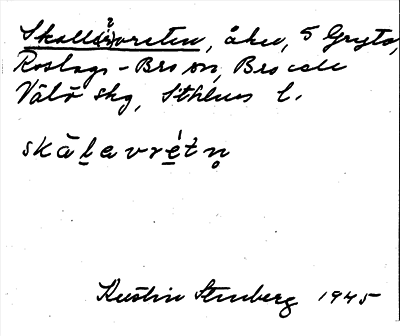 Skall(a?)vreten, åker, 5 Gryta,
Roslags-Bro sn, Bro och
Vätö skg, Sthlms l.
skàḷavrétṇ
Kerstin Stenberg 1945